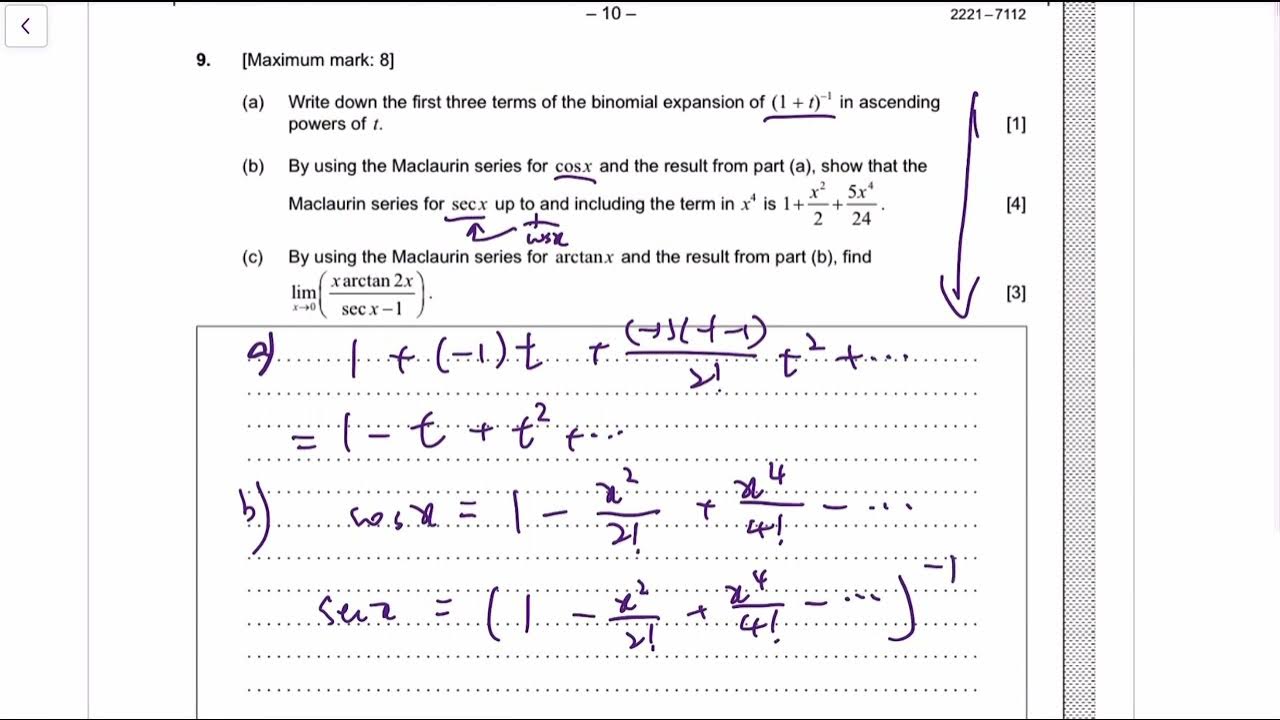 – 10 –
2221–7112
9. [Maximum mark: 8]
(a) Write down the first three terms of the binomial expansion of (1 + t)⁻¹ in ascending
powers of t.
[1]
(b) By using the Maclaurin series for cos x and the result from part (a), show that the
Maclaurin series for sec x up to and including the term in x⁴ is 1 + x²/2 + 5x⁴/24 .
[4]
1/cosx
(c) By using the Maclaurin series for arctan x and the result from part (b), find
lim x→0 (x arctan 2x / sec x − 1) .
[3]
a) 1 + (-1)t + (-1)(-1-1)/2! t² + ...
= 1 - t + t² + ...
b) cos x = 1 - x²/2! + x⁴/4! - ...
sec x = (1 - x²/2! + x⁴/4! - ...)⁻¹